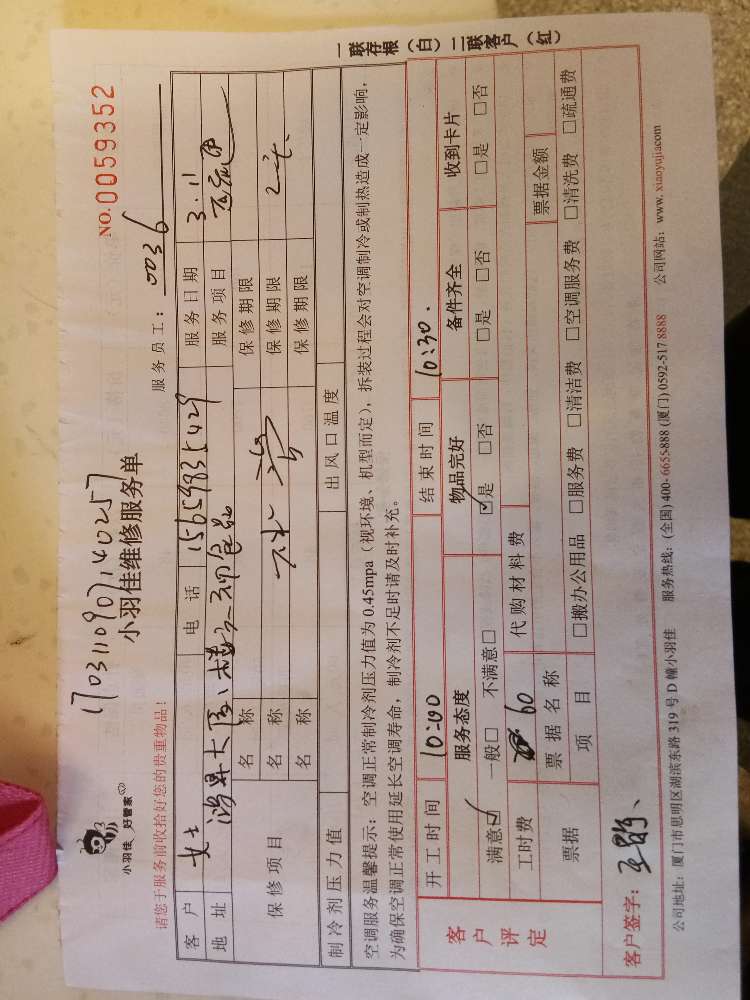 1703110907140257
NO.0059352
小羽佳 好管家
小羽佳维修服务单
请您于服务前收拾好您的贵重物品!
服务员工: 0036
客户 女士 电话 15659835429 服务日期 3.11
地址 服务项目
保修项目 名称 保修期限
名称 保修期限
名称 保修期限
制冷剂压力值 出风口温度
空调服务温馨提示:空调正常制冷剂压力值为 0.45mpa(视环境、机型而定),拆装过程会对空调制冷或制热造成一定影响,
为确保空调正常使用延长空调寿命,制冷剂不足时请及时补充。
一联存根(白)二联客户(红)
客户评定 开工时间 10:00 结束时间 10:30.
服务态度 物品完好 备件齐全 收到卡片
满意☑ 一般□ 不满意□ ☑是 □否 □是 □否 □是 □否
工时费 60 代购材料费
票据 票据名称 票据金额
项目 □搬办公用品 □服务费 □清洁费 □空调服务费 □清洗费 □疏通费
客户签字:
公司地址:厦门市思明区湖滨东路 319 号 D 幢小羽佳 服务热线:(全国) 400-6655-888 (厦门) 0592-517 8888 公司网站:www.xiaoyujia.com